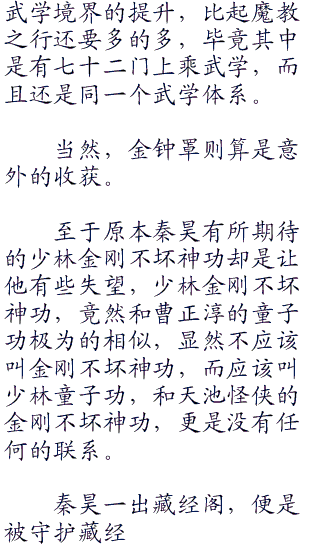 武学境界的提升，比起魔教
之行还要多的多，毕竟其中
是有七十二门上乘武学，而
且还是同一个武学体系。
当然，金钟罩则算是意
外的收获。
至于原本秦昊有所期待
的少林金刚不坏神功却是让
他有些失望，少林金刚不坏
神功，竟然和曹正淳的童子
功极为的相似，显然不应该
叫金刚不坏神功，而应该叫
少林童子功，和天池怪侠的
金刚不坏神功，更是没有任
何的联系。
秦昊一出藏经阁，便是
被守护藏经